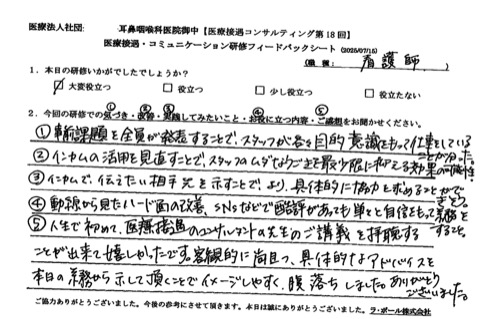 医療法人社団: 耳鼻咽喉科医院御中【医療接遇コンサルティング第18回】
医療接遇・コミュニケーション研修フィードバックシート (2025/07/15)
(職種: 看護師)
1．本日の研修いかがでしたでしょうか？
大変役立つ 役立つ 少し役立つ 役立たない
① ② ③ ④ ⑤
2．今回の研修での気づき・改善・実践してみたいこと・お役に立つ内容・ご感想をお聞かせください。
①事前課題を全員が発表することで、スタッフが各々目的意識をもって仕事をしていることが分かった。
②インカムの活用を見直すことで、スタッフのムダなうごきを最少限に抑える効果の可能性！
③インカムで、伝えたい相手先を示すことで、より、具体的に協力を求めることができそう。
④動線から見たハード面の改善、SNSなどで酷評があっても堂々と自信をもって業務をすること。
⑤人生で初めて、医療接遇のコンサルタントの先生のご講義を拝聴する
ことが出来て嬉しかったです。客観的に尚且つ、具体的なアドバイスを
本日の業務から示して頂くことでイメージしやすく、腹落ちしました。ありがとうございました。
ご協力ありがとうございました。今後の参考にさせて頂きます。本日は誠にありがとうございました。ラ・ポール株式会社